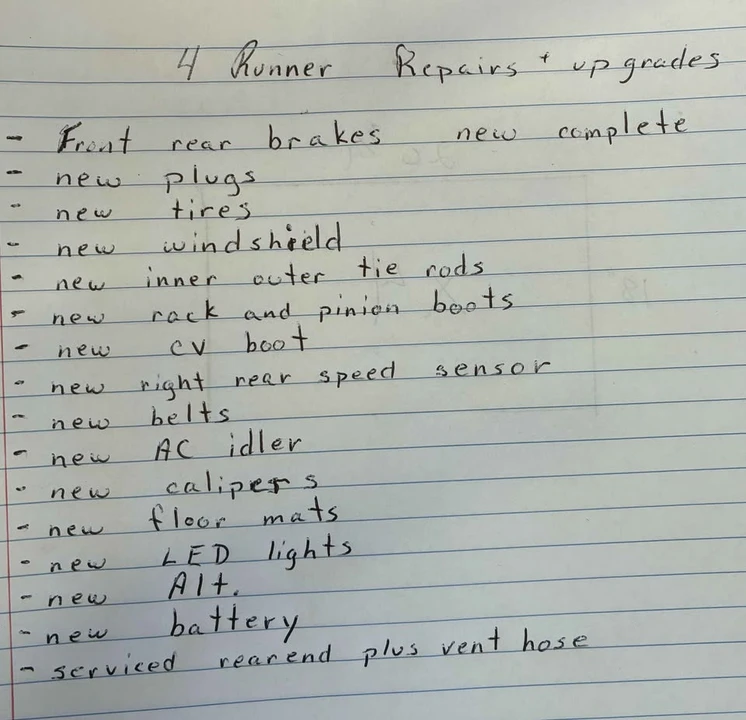 4 Runner Repairs + upgrades
- Front rear brakes new complete
- new plugs
- new tires
- new windshield
- new inner outer tie rods
- new rack and pinion boots
- new cv boot
- new right rear speed sensor
- new belts
- new AC idler
- new calipers
- new floor mats
- new LED lights
- new Alt.
- new battery
- serviced rearend plus vent hose